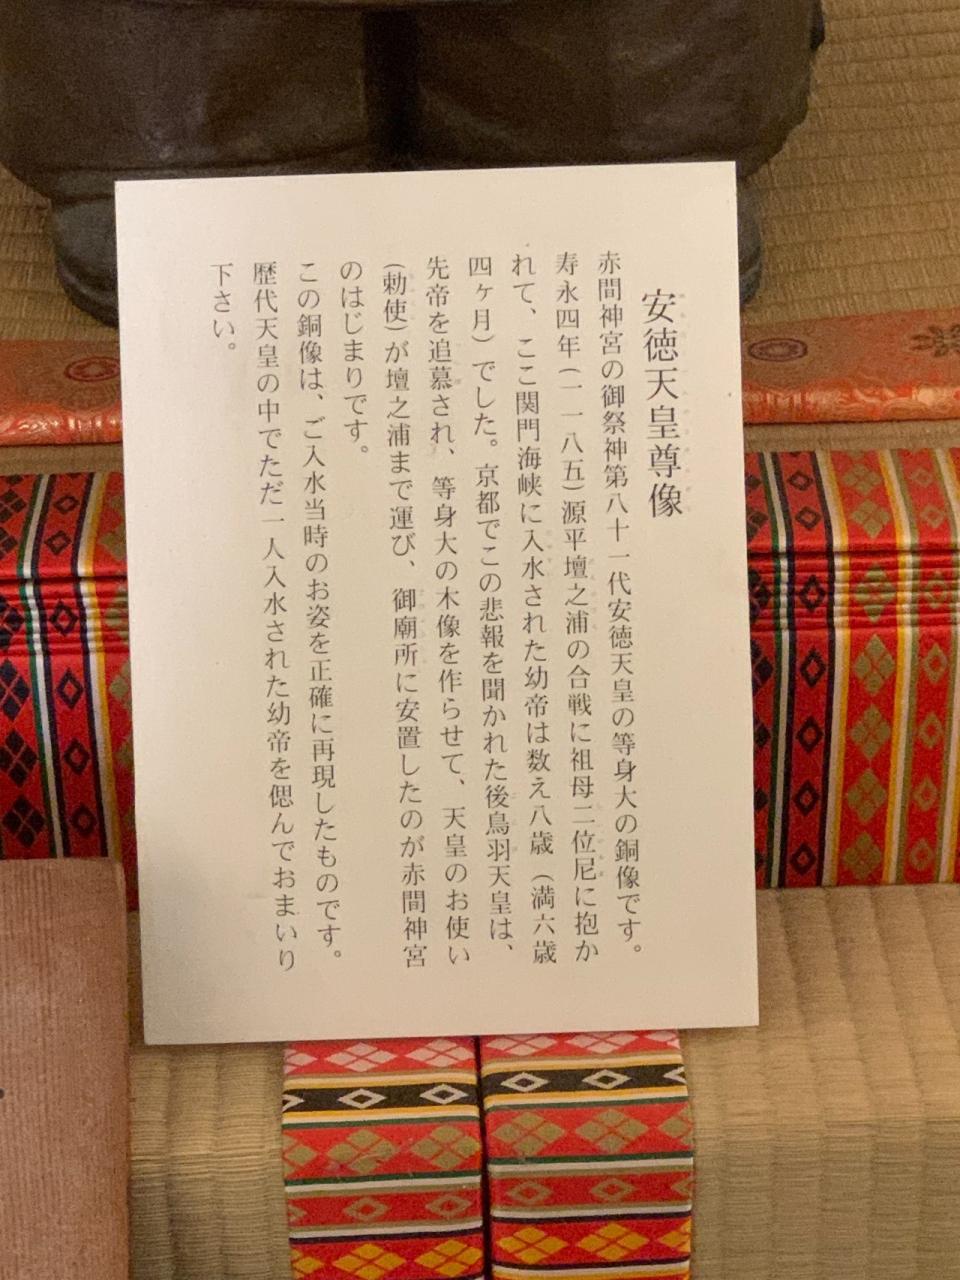 安徳天皇尊像
赤間神宮の御祭神第八十一代安徳天皇の等身大の銅像です。
寿永四年(一一八五)源平壇之浦の合戦に祖母二位尼に抱か
れて、ここ関門海峡に入水された幼帝は数え八歳(満六歳
四ヶ月)でした。京都でこの悲報を聞かれた後鳥羽天皇は、
先帝を追慕され、等身大の木像を作らせて、天皇のお使い
(勅使)が壇之浦まで運び、御廟所に安置したのが赤間神宮
のはじまりです。
この銅像は、ご入水当時のお姿を正確に再現したものです。
歴代天皇の中でただ一人入水された幼帝を偲んでおまいり
下さい。